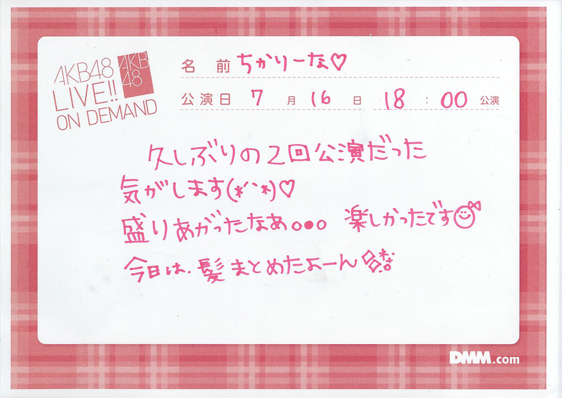 AKB48
LIVE!!
ON DEMAND
AKB
48
名 前 ちかりーな♡
公演日 7 月 16 日 18 : 00 公演
久しぶりの2回公演だった
気がします(*´`*)♡
盛りあがったなあ。●● 楽しかったです
今日は、髪まとめたよーん
DMM.com